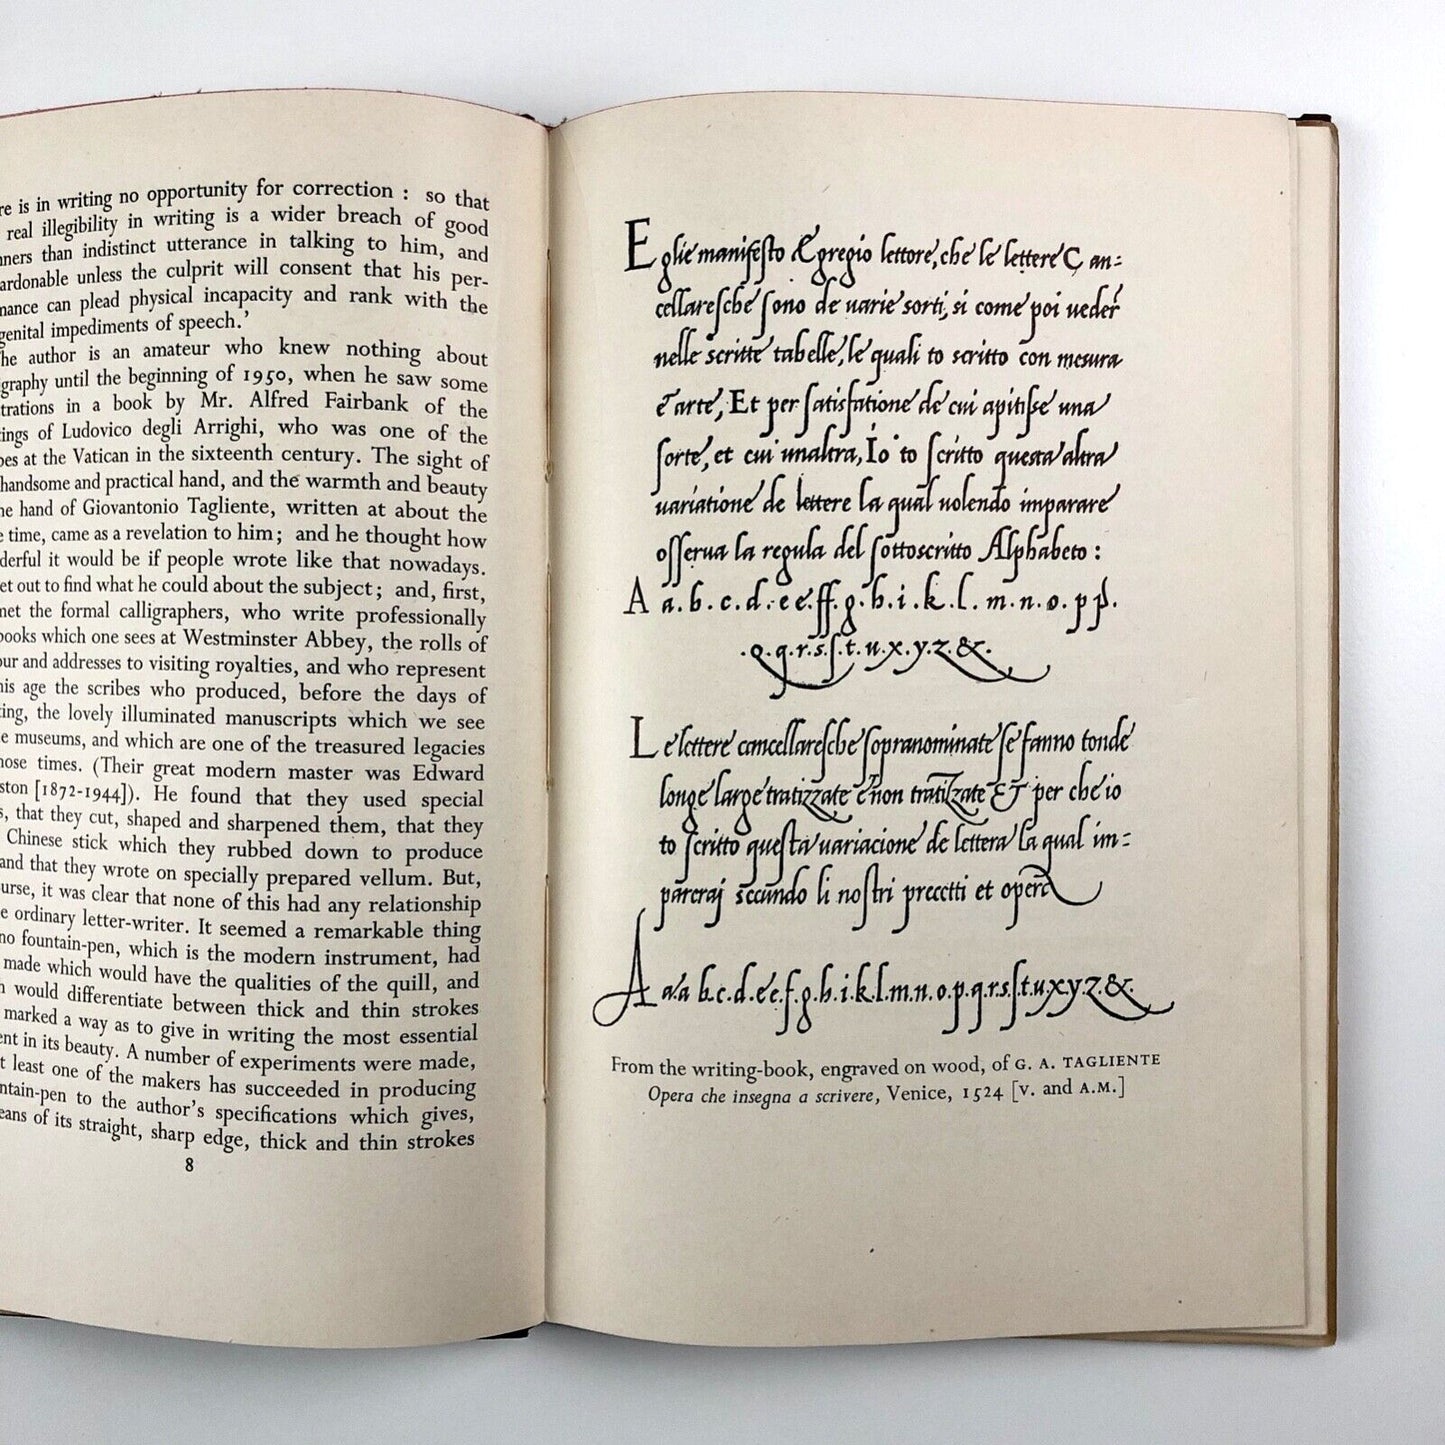 re is in writing no opportunity for correction : so that
real illegibility in writing is a wider breach of good
nners than indistinct utterance in talking to him, and
ardonable unless the culprit will consent that his per-
mance can plead physical incapacity and rank with the
genital impediments of speech.'
he author is an amateur who knew nothing about
igraphy until the beginning of 1950, when he saw some
trations in a book by Mr. Alfred Fairbank of the
ings of Ludovico degli Arrighi, who was one of the
bes at the Vatican in the sixteenth century. The sight of
handsome and practical hand, and the warmth and beauty
he hand of Giovantonio Tagliente, written at about the
e time, came as a revelation to him; and he thought how
derful it would be if people wrote like that nowadays.
et out to find what he could about the subject; and, first,
met the formal calligraphers, who write professionally
books which one sees at Westminster Abbey, the rolls of
our and addresses to visiting royalties, and who represent
his age the scribes who produced, before the days of
ting, the lovely illuminated manuscripts which we see
e museums, and which are one of the treasured legacies
hose times. (Their great modern master was Edward
ston [1872-1944]). He found that they used special
s, that they cut, shaped and sharpened them, that they
Chinese stick which they rubbed down to produce
and that they wrote on specially prepared vellum. But,
urse, it was clear that none of this had any relationship
e ordinary letter-writer. It seemed a remarkable thing
no fountain-pen, which is the modern instrument, had
made which would have the qualities of the quill, and
h would differentiate between thick and thin strokes
marked a way as to give in writing the most essential
ent in its beauty. A number of experiments were made,
t least one of the makers has succeeded in producing
ntain-pen to the author's specifications which gives,
eans of its straight, sharp edge, thick and thin strokes
8
Eglie manifesto Egregio lettore, che le lettere Can-
cellaresche sono de varie sorti, si come poi veder
nelle scritte tabelle, le quali io scritto con mesura
e arte, Et per satisfatione de cui apitisse una
sorte, et cui unaltra, Io io scritto questa altra
variatione de lettere la qual volendo imparare
osserva la regula del sottoscritto Alphabeto :
A a.b.c.d.e e.ff.g.h.i.k.l.m.n.o.p p.
.q.q.r.s.ſ.t.u.x.y.z.&.
Le lettere cancellaresche sopranominate se fanno tonde
longe large tratizzate e non tratizzate ET per che io
io scritto questa variacione de lettera la qual im-
parerai secundo li nostri precetti et opera
A a.a b.c.d.e e.f.g.h.i.k.l.m.n.o.p.q.r.s.ſ.t.u.x.y.z.&.
From the writing-book, engraved on wood, of G. A. TAGLIENTE
Opera che insegna a scrivere, Venice, 1524 [V. and A.M.]